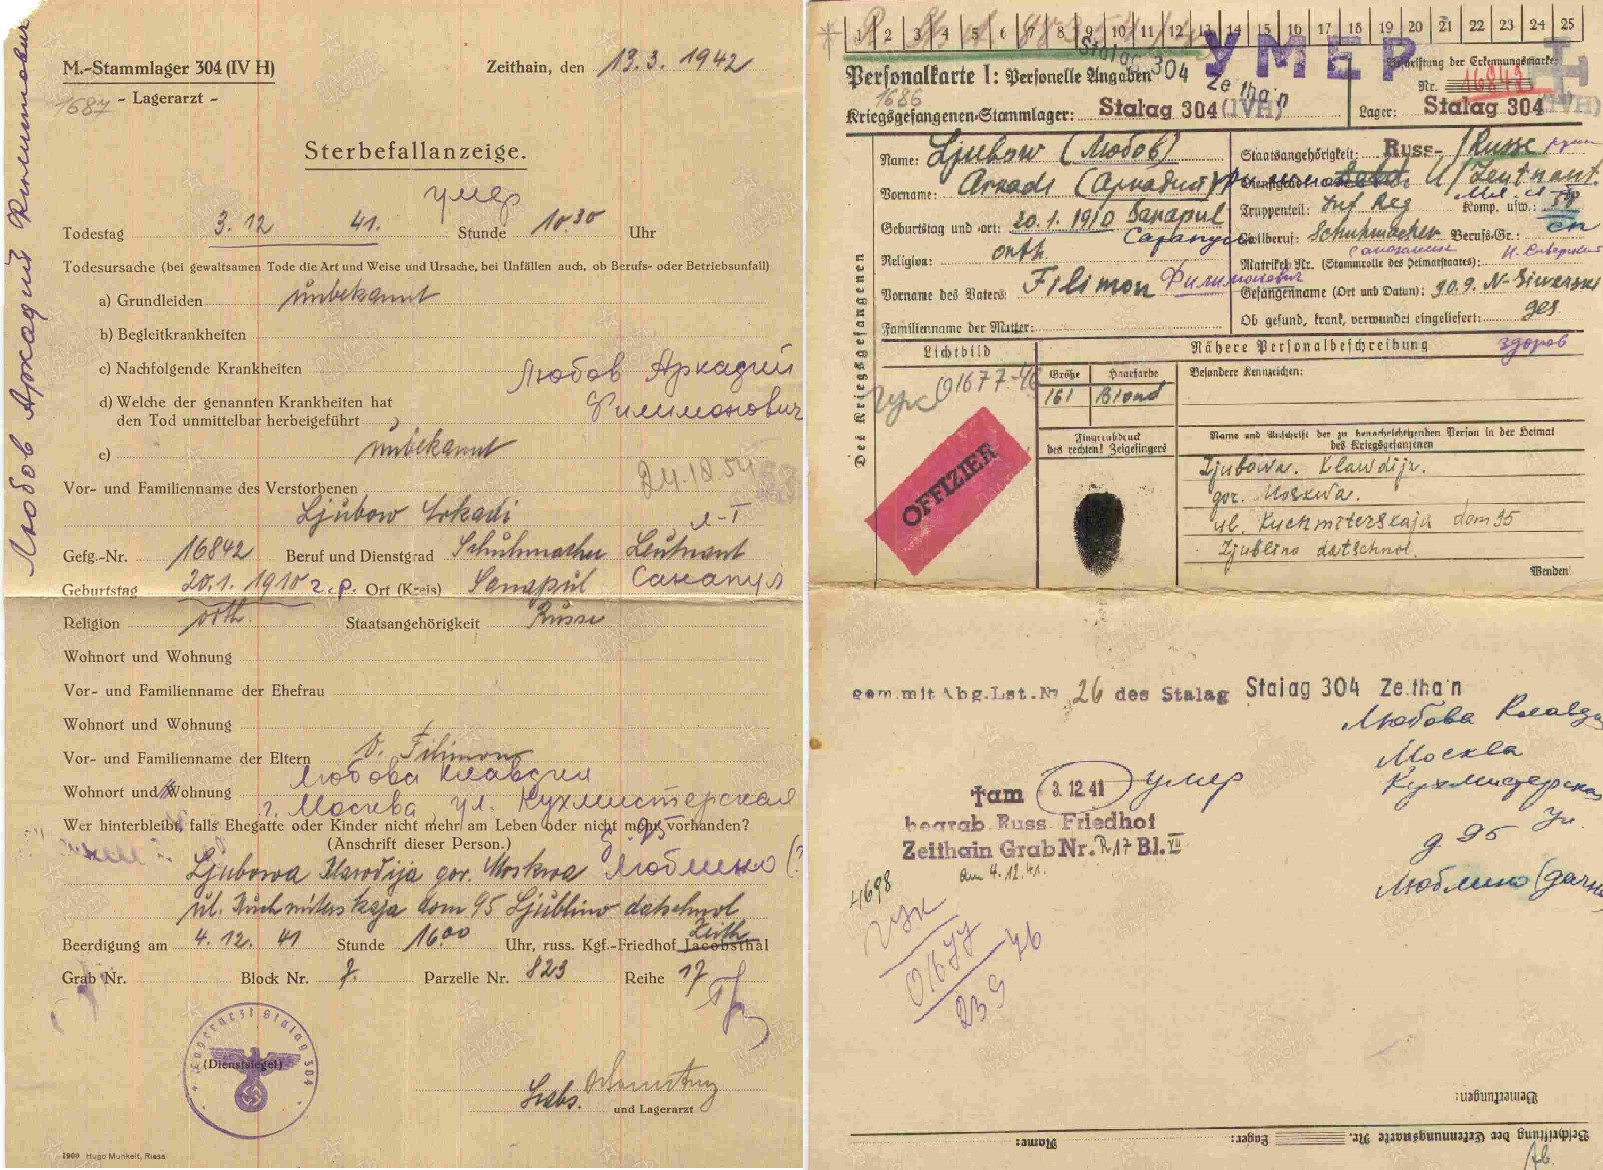 Любов Аркадий Филимонович
M.-Stammlager 304 (IV H)
1687
- Lagerarzt -
Zeithain, den 13.3.1942
Sterbefallanzeige.
умер
Todestag 3. 12 41. Stunde 10.30 Uhr
Todesursache (bei gewaltsamen Tode die Art und Weise und Ursache, bei Unfällen auch, ob Berufs- oder Betriebsunfall)
a) Grundleiden unbekannt
b) Begleitkrankheiten
c) Nachfolgende Krankheiten
Любов Аркадий
Филимонович
d) Welche der genannten Krankheiten hat
den Tod unmittelbar herbeigeführt
e) unbekannt
24.12.54
Vor- und Familienname des Verstorbenen
Ljubow Arkadi
л-т
Gefg.-Nr. 16842 Beruf und Dienstgrad Schuhmacher Leutnant
Geburtstag 20.1.1910 г.р. Ort (Kreis) Sanapul Санапул
Religion orth. Staatsangehörigkeit Russe
Wohnort und Wohnung
Vor- und Familienname der Ehefrau
Wohnort und Wohnung
Vor- und Familienname der Eltern V. Filimon
Любова Клавдия
Wohnort und Wohnung г. Москва ул. Кухмистерская
Wer hinterbleibt, falls Ehegatte oder Kinder nicht mehr am Leben oder nicht mehr vorhanden?
(Anschrift dieser Person.) д. 95
Ljubowa Klawdija gor. Moskwa Люблино (?
ul. Kuchmiterskaja dom 95 Ljublino datschnol
Beerdigung am 4. 12. 41 Stunde 16.00 Uhr, russ. Kgf.-Friedhof Jacobsthal Zeith.
Grab Nr. Block Nr. 7. Parzelle Nr. 823 Reihe 17
Lagerarzt Stalag 304
(Dienstsiegel)
und Lagerarzt
1900 Hugo Munkelt, Riesa
1 2 3 4 5 6 7 8 9 10 11 12 13 14 15 16 17 18 19 20 21 22 23 24 25
УМЕР
Stalag 304
Zeithain
Personalkarte I: Personelle Angaben
Beschriftung der Erkennungsmarke:
Nr. 16842
1686
Kriegsgefangenen-Stammlager: Stalag 304 (IVH)
Lager: Stalag 304 (IVH)
Des Kriegsgefangenen
Name: Ljubow (Любов)
Vorname: Arkadi (Аркадий) Филимонович
Geburtstag und -ort: 20.1.1910 Sanapul
Сарапул
Religion: orth.
Vorname des Vaters: Filimon Филимонович
Familienname der Mutter:
Staatsangehörigkeit: Russ- / Russe
Dienstgrad: U/Leutnant.
Мл. л-т
Truppenteil: Inf. Reg Komp. usw.:
Zivilberuf: Schuhmacher Berufs-Gr.:
сапожник
Matrikel Nr. (Stammrolle des Heimatstaates):
Gefangennahme (Ort und Datum): 30.9. N-
Ob gesund, krank, verwundet eingeliefert: ges
здоров
Lichtbild
Nähere Personalbeschreibung
01677-46
OFFIZIER
Größe Haarfarbe Besondere Kennzeichen:
161 Blond
Fingerabdruck
des rechten Zeigefingers
Name und Anschrift der zu benachrichtigenden Person in der Heimat
des Kriegsgefangenen
Ljubowa. Klawdija.
gor. Moskwa.
ul. Kuchmiterskaja dom 95
Ljublino datschnol.
Wenden!
gem. mit Abg. Lst. № 26 des Stalag Stalag 304 Zeithain
Любова Клавдия
Москва
Кухмистерская
ул.
д 95
Люблино (дачн
†am 3.12.41 умер
begrab. Russ. Friedhof
Zeithain Grab Nr. R 17 Bl. VII
am 4.12.41.
4698
01677 46
239
Bemerkungen:
Beschriftung der Erkennungsmarke Nr. Lager: Name: